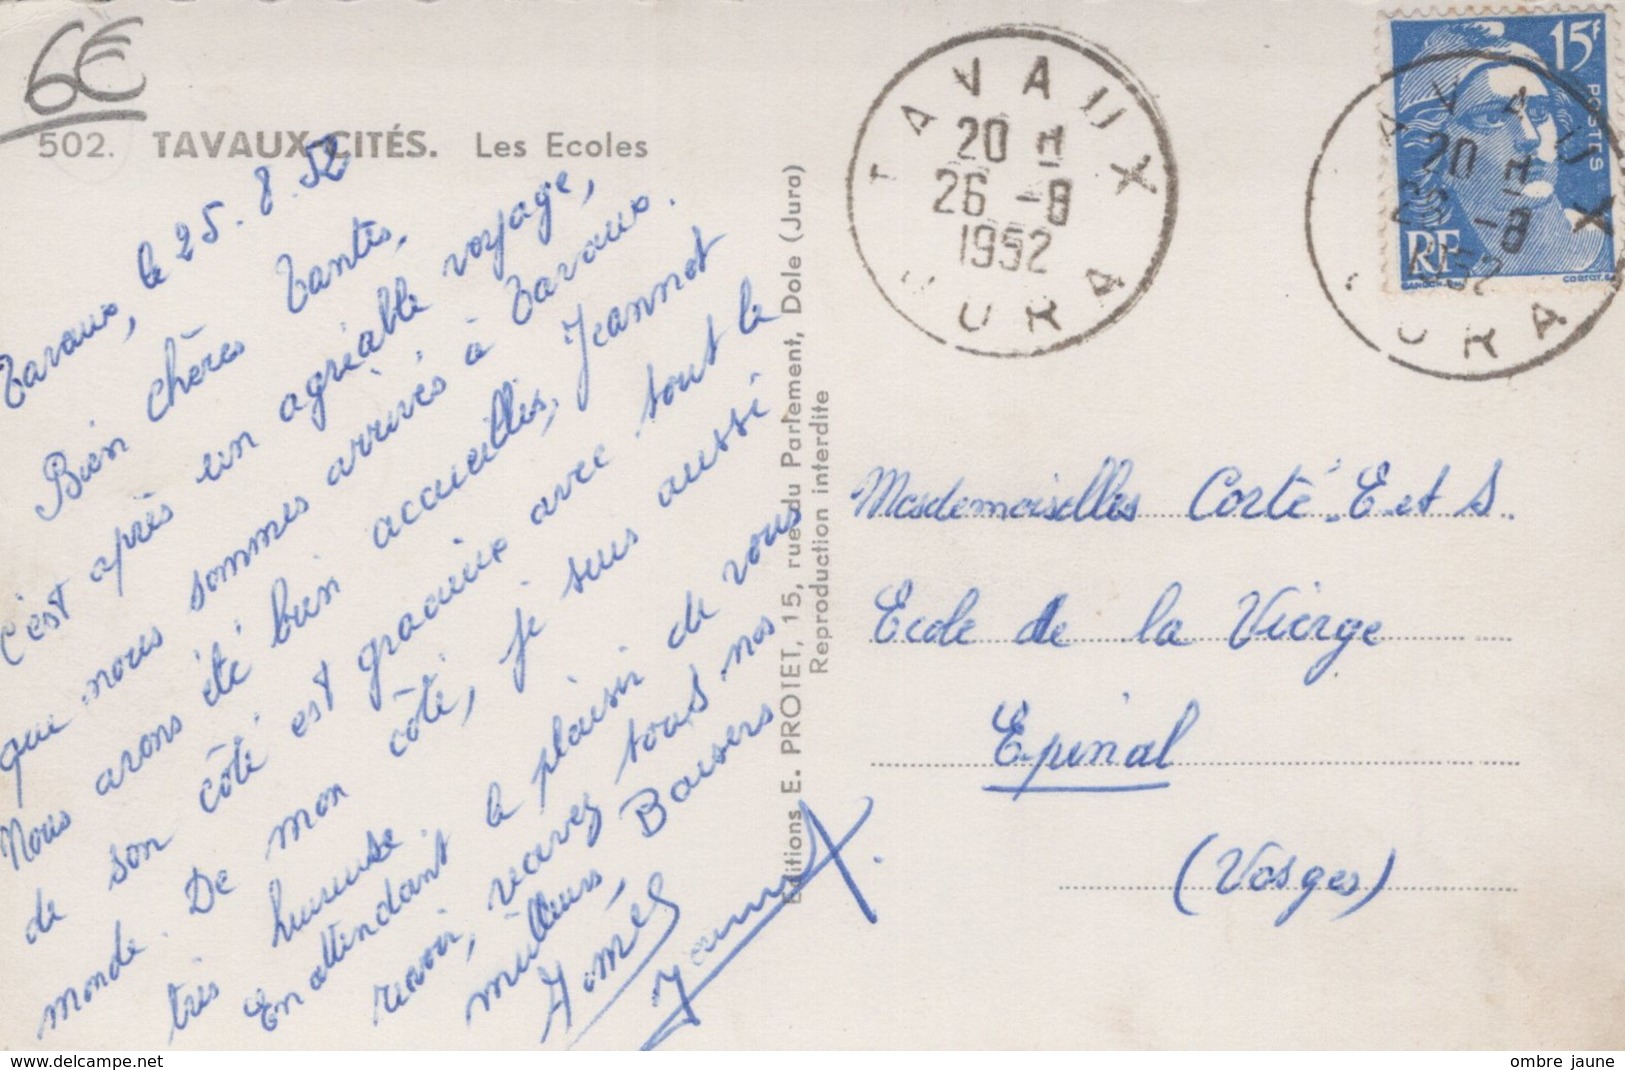 6€
502. TAVAUX-CITÉS. Les Ecoles
Tavaux, le 25.8.52
Bien chères Tantes,
C'est après un agréable voyage,
que nous sommes arrivés à Tavaux.
Nous avons été bien accueillis, Jeannot
de son côté est gracieux avec tout le
monde. De mon côté, je suis aussi
très heureuse.
En attendant le plaisir de vous
revoir, recevez tous nos
meilleurs Baisers
Jeannot.
Editions E. PROTET, 15, rue du Parlement, Dole (Jura)
Reproduction interdite
TAVAUX
20 H
26 -8
1952
JURA
15F
POSTES
RF
TAVAUX
20 H
26 -8
1952
JURA
Mesdemoiselles Corté. E. et S.
Ecole de la Vierge
Epinal
(Vosges)
www.delcampe.net
ombre jaune